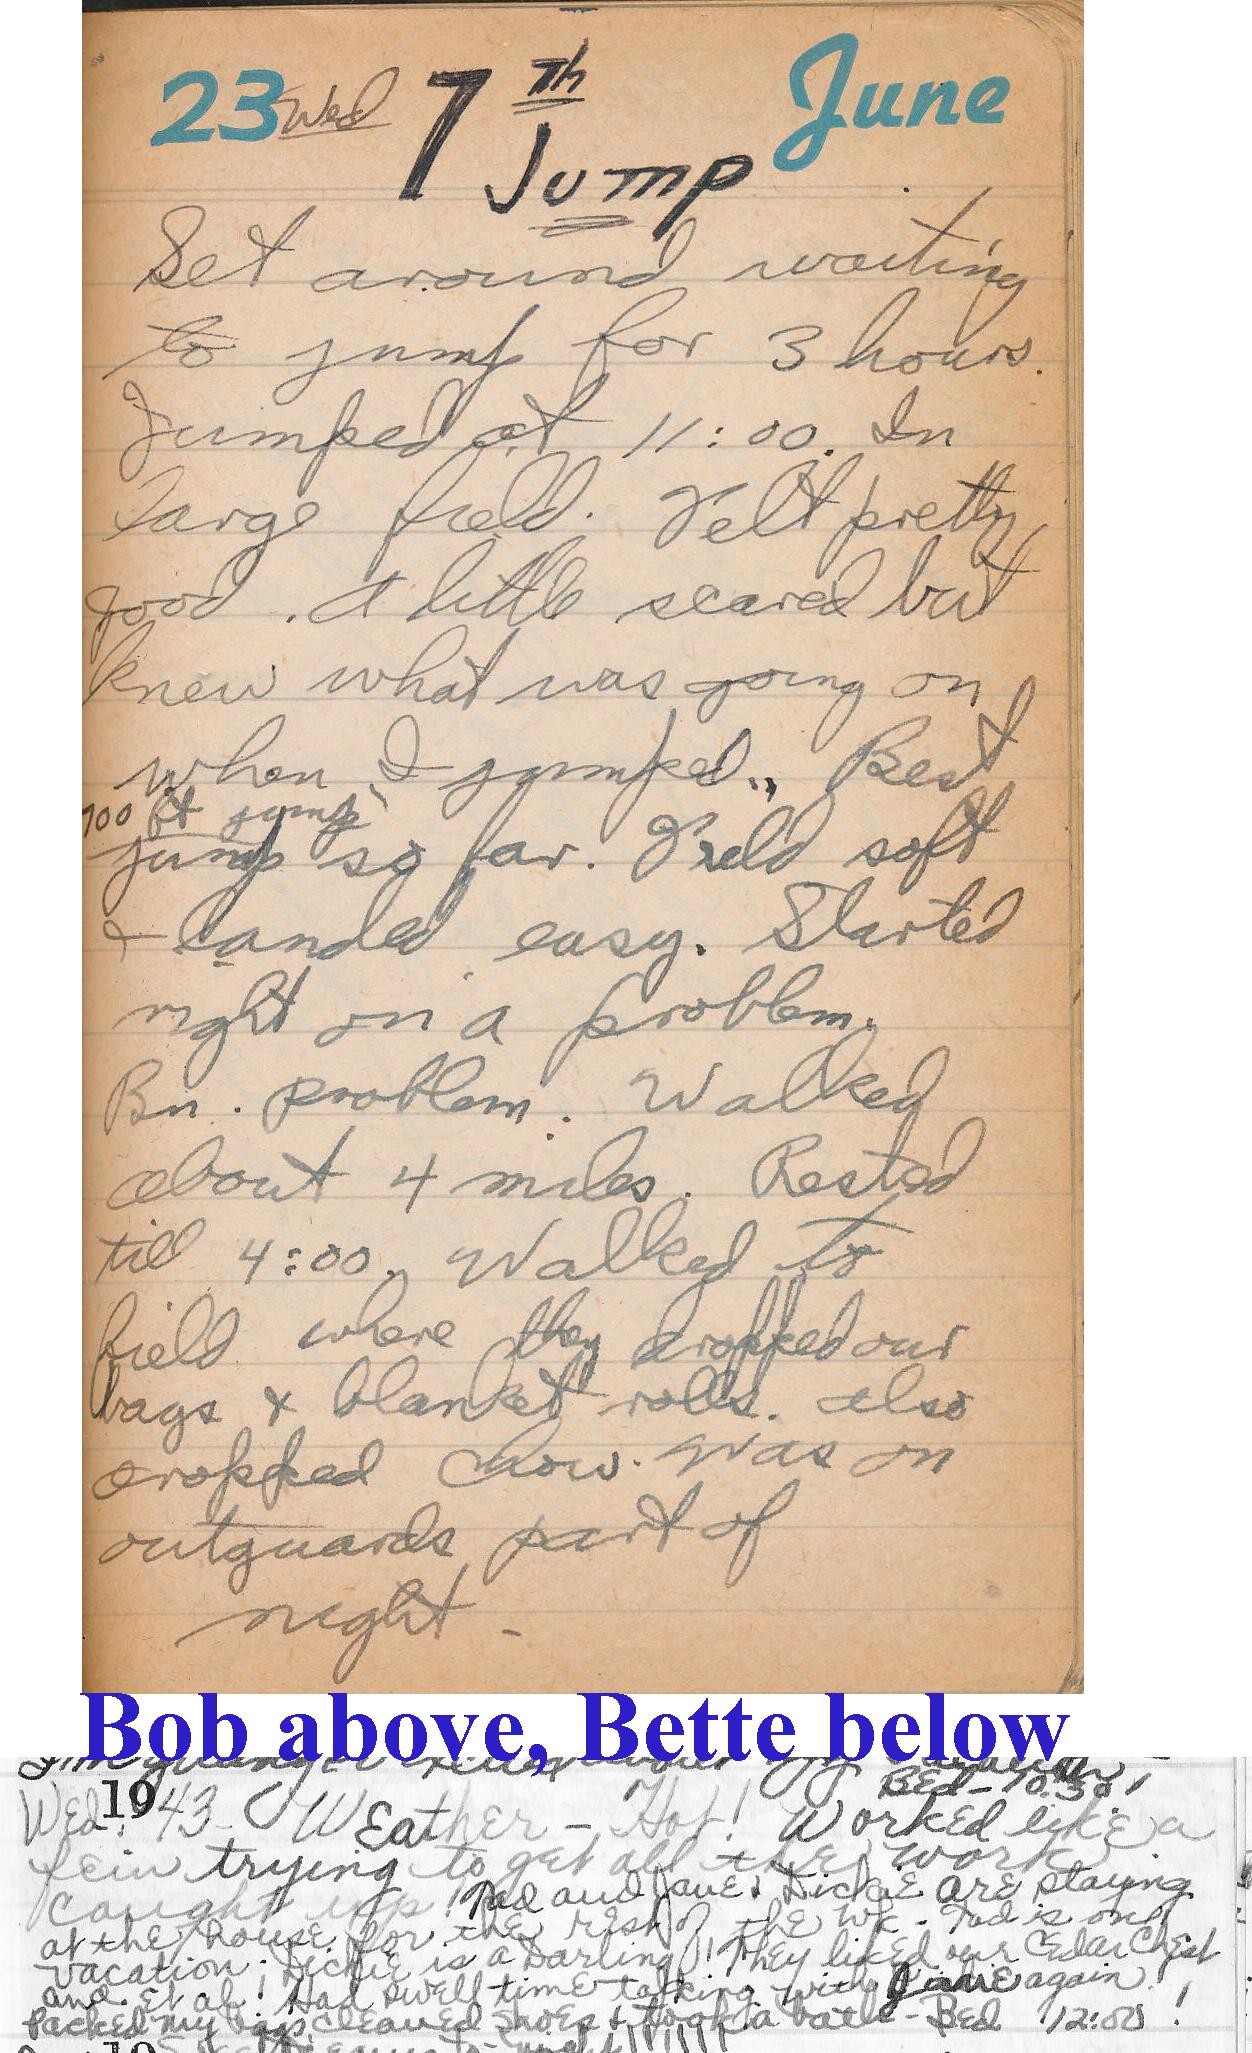 23 Wed 7Th June
Jump
Set around waiting
to jump for 3 hours.
Jumped at 11:00. In
large field. Felt pretty
good. A little scared but
knew what was going on
when I jumped. Best
700 ft jump
jump so far. Field soft
& landed easy. Started
right on a problem.
Bn. problem. Walked
about 4 miles. Rested
till 4:00. Walked to
field where they dropped our
bags & blanket rolls. Also
dropped chow. Was on
outguards part of
night -
Bob above, Bette below
BED - 10:30!
Wed. 1943 - WEather - Hot! Worked likE a
fein trying to get all thE work
caught up! Tad and Jane & DickiE arE staying
at thE housE for thE rest of thE Wk - Tad is on
vacation. DickiE is a Darling! ThEy likEd our CEdar ChEst
and. Had swell timE talking with JanE again!
PackEd my bags, clEanEd shoEs & took a bath - BEd 12:00!
19